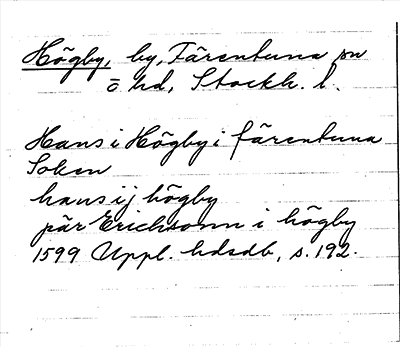 Högby, by, Färentuna sn
ö hd, Stockh. l.
Hans i Högby i färentuna
Soken
hans ij högby
pär Erichsonn i högby
1599 Uppl. hdsdb, s. 192.